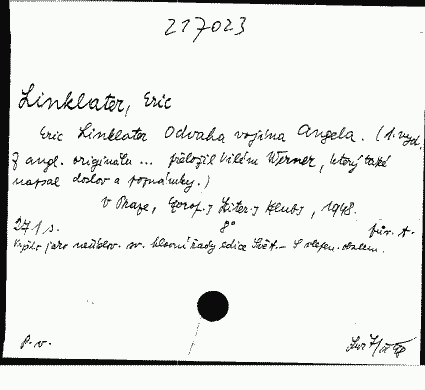 217023
Linklater, Eric
Eric Linklater Odvaha vojína Angela. (1. vyd.
Z angl. originálu ... přeložil Vilém Werner, který také
napsal doslov a poznámky.)
V Praze, Evrop. liter. klub, 1948.
271 s. 8° pův. A.
Vyšlo jako neúbov. sv. hlavní řady edice Svět. - S vlepen. obalem.
p. v.